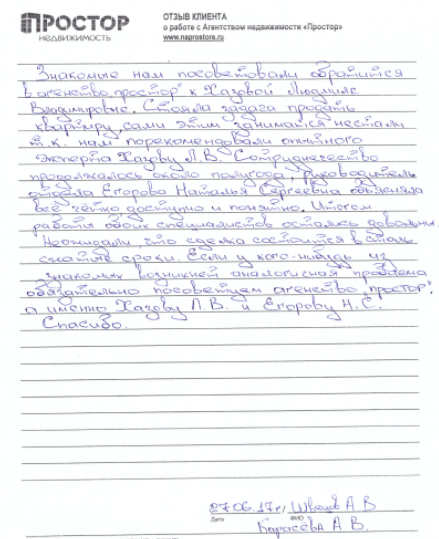 ПРОСТОР
НЕДВИЖИМОСТЬ
ОТЗЫВ КЛИЕНТА
о работе с Агентством недвижимости «Простор»
www.naprostore.ru
Знакомые нам посоветовали обратится
в агенство „простор" к Хазовой Людмиле
Владимировне. Стояла задача продать
квартиру, сами этим заниматся нестали
т.к. нам порекомендовали опытного
эксперта Хазову Л.В. Сотрудничество
продолжалось около полугода, Руководитель
отдела Егорова Наталья Сергеевна объясняла
всё чётко доступно и понятно. Итогом
работы обоих специалистов остались довольны
Неожидали, что сделка состоится в столь
сжатые сроки. Если у кого-нибудь из
знакомых возникнет аналогичная проблема
обязательно посоветуем агенство „простор",
а именно Хазову Л.В. и Егорову Н.С.
Спасибо.
27.06.17г. А В
Дата
ФИО
Карасёва А В.